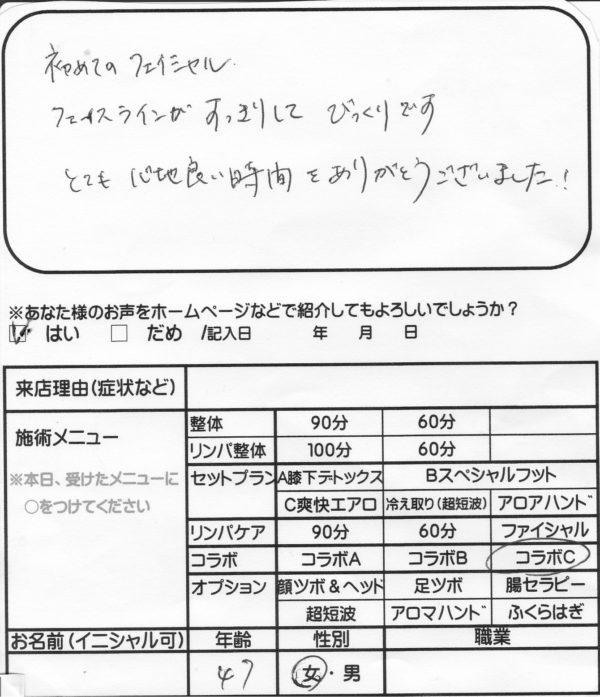 初めてのフェイシャル
フェイスラインがすっきりして びっくりです
とても 心地良い時間をありがとうございました!
※あなた様のお声をホームページなどで紹介してもよろしいでしょうか?
はい だめ /記入日 年 月 日
来店理由(症状など)
施術メニュー
※本日、受けたメニューに
○をつけてください
整体 90分 60分
リンパ整体 100分 60分
セットプラン A膝下デトックス Bスペシャルフット
C爽快エアロ 冷え取り(超短波) アロアハンド
リンパケア 90分 60分 ファイシャル
コラボ コラボA コラボB コラボC
オプション 顔ツボ&ヘッド 足ツボ 腸セラピー
超短波 アロマハンド ふくらはぎ
お名前(イニシャル可) 年齢 性別 職業
47 女・男